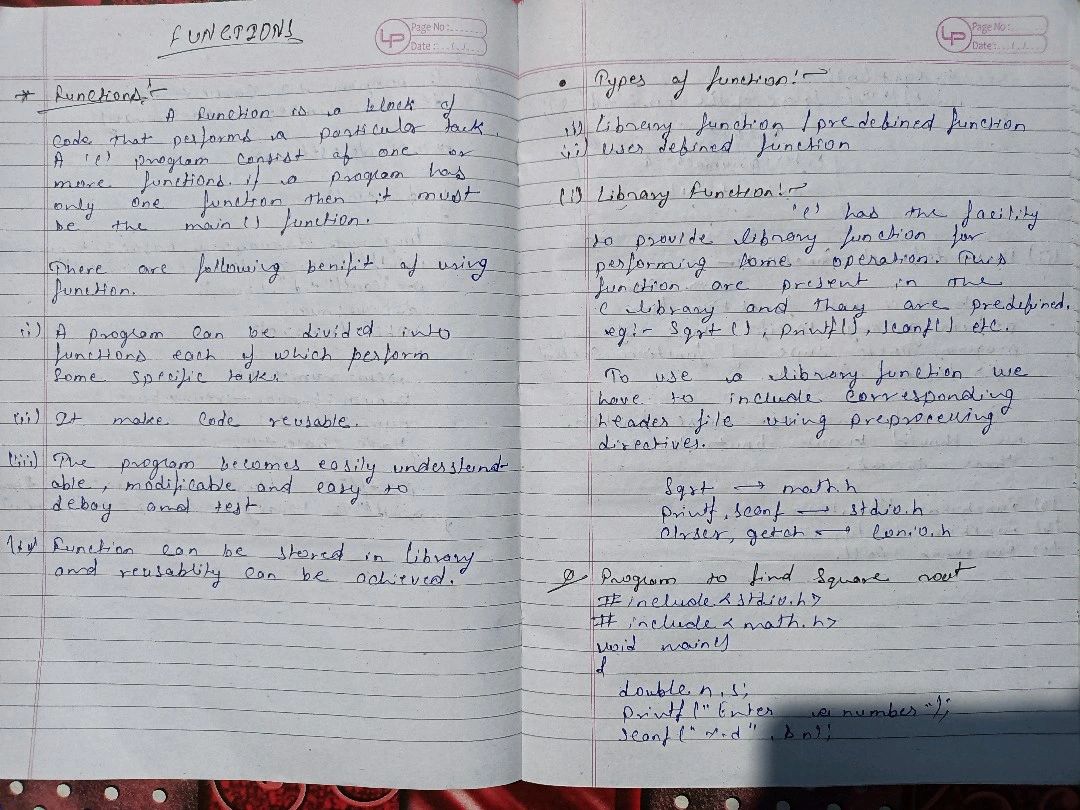 FUNCTIONS
LP Page No:
Date:
* Functions:-
A function is a block of
code that performs a particular task.
A 'C' program consist of one or
more functions. if a program has
only one function then it must
be the main () function.
There are following benifit of using
function.
(i) A program can be divided into
functions each of which perform
some specific tasks.
(ii) It make code reusable.
(iii) The program becomes easily understand-
able, modificable and easy to
debay and test
(iv) Function can be stored in library
and reusablity can be achieved.
LP Page No:
Date:
• Types of function:-
(i) Library function / predefined function
(ii) User defined function
(i) Library function:-
'C' has the facility
to provide library function for
performing some operation. This
function are present in the
C library and thay are predefined.
eg:- Sqrt (), printf(), scanf() etc.
To use a library function we
have to include corresponding
header file using preprocessing
directives.
Sqrt → math.h
printf, scanf → stdio.h
clrscr, getch → conio.h
Q Program to find Square root
# include <stdio.h>
# include < math.h>
void main()
{
double n, s;
printf (" Enter a number ");
scanf (" %d" , & n);